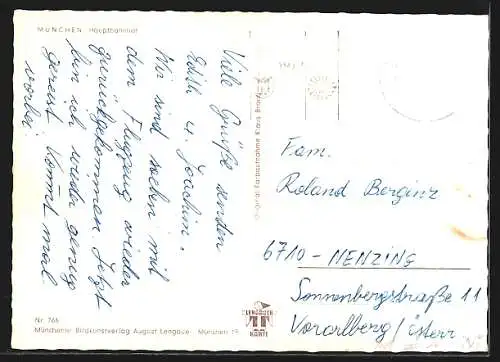 MÜNCHEN Hauptbahnhof
Viele Grüße senden
Edith u. Joachim.
Wir sind soeben mit
dem Flugzeug wieder
zurückgekommen. Jetzt
bin ich wieder genug
gereist. Kommt mal
vorbei.
Original-Farbaufnahme Klaus
Fam.
Roland Berginz
6710-NENZING
Sonnenbergstraße 11
Vorarlberg/Österr.
Nr. 766
Münchener Bildkunstverlag August Lengauer München 19
LENGAUER
KARTE